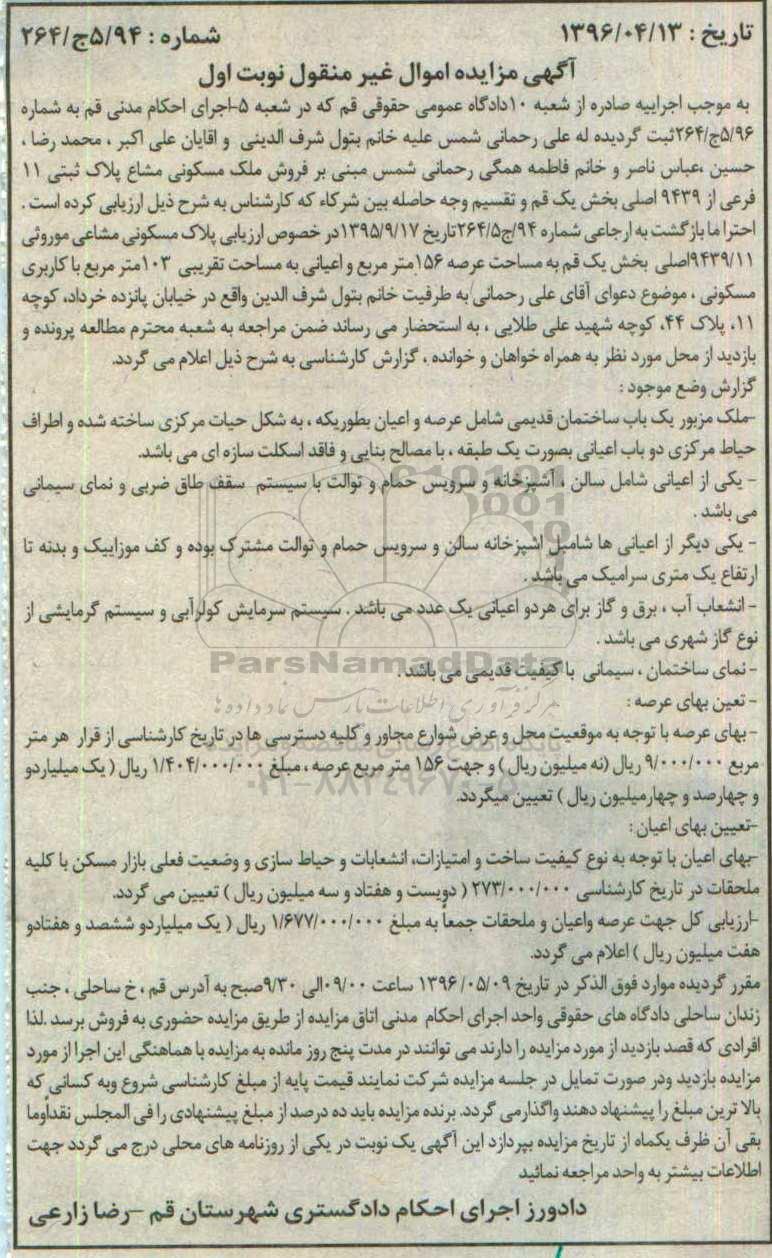 تاریخ : ۱۳۹۶/۰۴/۱۳
شماره : ۵/۹۴ج/۲۶۴
آگهی مزایده اموال غیر منقول نوبت اول
به موجب اجراییه صادره از شعبه ۱۰دادگاه عمومی حقوقی قم که در شعبه ۵-اجرای احکام مدنی قم به شماره
۵/۹۶ج/۲۶۴ثبت گردیده له علی رحمانی شمس علیه خانم بتول شرف الدینی و اقایان علی اکبر ، محمد رضا ،
حسین ،عباس ناصر و خانم فاطمه همگی رحمانی شمس مبنی بر فروش ملک مسکونی مشاع پلاک ثبتی ۱۱
فرعی از ۹۴۳۹ اصلی بخش یک قم و تقسیم وجه حاصله بین شرکاء که کارشناس به شرح ذیل ارزیابی کرده است .
احترا ما بازگشت به ارجاعی شماره ۹۴/ج۲۶۴/۵تاریخ ۱۳۹۵/۹/۱۷در خصوص ارزیابی پلاک مسکونی مشاعی موروثی
۹۴۳۹/۱۱اصلی بخش یک قم به مساحت عرصه ۱۵۶متر مربع و اعیانی به مساحت تقریبی ۱۰۳متر مربع با کاربری
مسکونی ، موضوع دعوای آقای علی رحمانی به طرفیت خانم بتول شرف الدین واقع در خیابان پانزده خرداد، کوچه
۱۱، پلاک ۴۴، کوچه شهید علی طلایی ، به استحضار می رساند ضمن مراجعه به شعبه محترم مطالعه پرونده و
بازدید از محل مورد نظر به همراه خواهان و خوانده ، گزارش کارشناسی به شرح ذیل اعلام می گردد.
گزارش وضع موجود :
-ملک مزبور یک باب ساختمان قدیمی شامل عرصه و اعیان بطوریکه ، به شکل حیات مرکزی ساخته شده و اطراف
حیاط مرکزی دو باب اعیانی بصورت یک طبقه ، با مصالح بنایی و فاقد اسکلت سازه ای می باشد.
- یکی از اعیانی شامل سالن ، آشپزخانه و سرویس حمام و توالت با سیستم سقف طاق ضربی و نمای سیمانی
می باشد .
- یکی دیگر از اعیانی ها شامل اشپزخانه سالن و سرویس حمام و توالت مشترک بوده و کف موزاییک و بدنه تا
ارتفاع یک متری سرامیک می باشد .
- انشعاب آب ، برق و گاز برای هردو اعیانی یک عدد می باشد . سیستم سرمایش کولرآبی و سیستم گرمایشی از
نوع گاز شهری می باشد .
ParsNamadData
- نمای ساختمان ، سیمانی با کیفیت قدیمی می باشد .
مرکز فرآوری اطلاعات پارس نماد داده ها
- تعین بهای عرصه :
- بهای عرصه با توجه به موقعیت محل و عرض شوارع مجاور و کلیه دسترسی ها در تاریخ کارشناسی از قرار هر متر
مربع ۹/۰۰۰/۰۰۰ ریال (نه میلیون ریال ) و جهت ۱۵۶ متر مربع عرصه ، مبلغ ۱/۴۰۴/۰۰۰/۰۰۰ ریال ( یک میلیاردو
و چهارصد و چهارمیلیون ریال ) تعیین میگردد.
-تعیین بهای اعیان :
-بهای اعیان با توجه به نوع کیفیت ساخت و امتیازات، انشعابات و حیاط سازی و وضعیت فعلی بازار مسکن با کلیه
ملحقات در تاریخ کارشناسی ۲۷۳/۰۰۰/۰۰۰ ( دویست و هفتاد و سه میلیون ریال ) تعیین می گردد.
-ارزیابی کل جهت عرصه واعیان و ملحقات جمعاً به مبلغ ۱/۶۷۷/۰۰۰/۰۰۰ ریال ( یک میلیاردو ششصد و هفتادو
هفت میلیون ریال ) اعلام می گردد.
مقرر گردیده موارد فوق الذکر در تاریخ ۱۳۹۶/۰۵/۰۹ ساعت ۰۹/۰۰الی ۹/۳۰صبح به آدرس قم ، خ ساحلی ، جنب
زندان ساحلی دادگاه های حقوقی واحد اجرای احکام مدنی اتاق مزایده از طریق مزایده حضوری به فروش برسد .لذا
افرادی که قصد بازدید از مورد مزایده را دارند می توانند در مدت پنج روز مانده به مزایده با هماهنگی این اجرا از مورد
مزایده بازدید ودر صورت تمایل در جلسه مزایده شرکت نمایند قیمت پایه از مبلغ کارشناسی شروع وبه کسانی که
بالا ترین مبلغ را پیشنهاد دهند واگذارمی گردد. برنده مزایده باید ده درصد از مبلغ پیشنهادی را فی المجلس نقداًوما
بقی آن ظرف یکماه از تاریخ مزایده بپردازد این آگهی یک نوبت در یکی از روزنامه های محلی درج می گردد جهت
اطلاعات بیشتر به واحد مراجعه نمائید
دادورز اجرای احکام دادگستری شهرستان قم -رضا زارعی